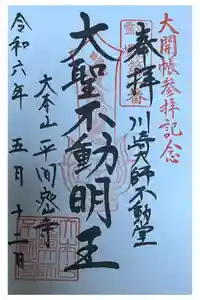 大開帳参拝記念
奉拝
川崎大師不動堂
大聖不動明王
大本山平間寺
令和六年五月十二日